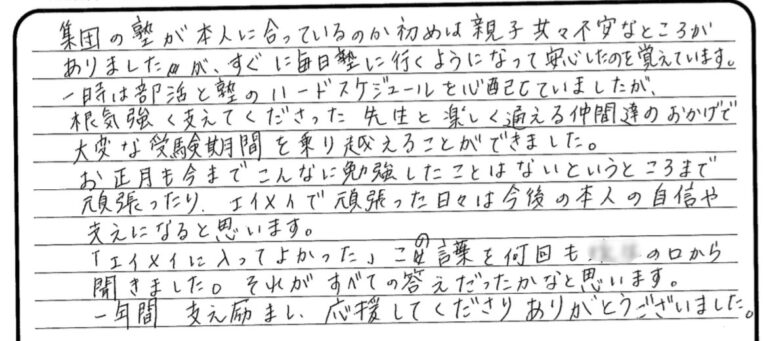 集団の塾が本人に合っているのか初めは親子共々不安なところが
ありましたが、すぐに毎日塾に行くようになって安心したのを覚えています。
一時は部活と塾のハードスケジュールを心配していましたが、
根気強く支えてくださった先生と楽しく通える仲間達のおかげで
大変な受験期間を乗り越えることができました。
お正月も今までこんなに勉強したことはないというところまで
頑張ったり、エイメイで頑張った日々は今後の本人の自信や
支えになると思います。
「エイメイに入ってよかった」この言葉を何回も の口から
聞きました。それがすべての答えだったかなと思います。
一年間 支え励まし、応援してくださりありがとうございました。